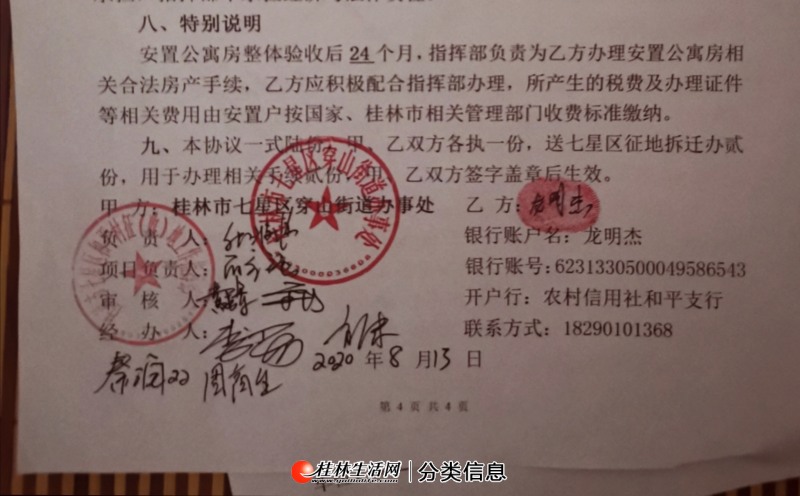 八、特别说明
安置公寓房整体验收后24个月，指挥部负责为乙方办理安置公寓房相
关合法房产手续，乙方应积极配合指挥部办理，所产生的税费及办理证件
等相关费用由安置户按国家、桂林市相关管理部门收费标准缴纳。
九、本协议一式陆份，甲、乙双方各执一份，送七星区征地拆迁办贰
份，用于办理相关手续贰份，甲、乙双方签字盖章后生效。
甲 方：桂林市七星区穿山街道办事处 乙 方：龙明杰
负 责 人： 银行账户名：龙明杰
项目负责人： 银行账号：6231330500049586543
审 核 人 开户行：农村信用社和平支行
经 办 人： 联系方式：18290101368
2020 年 8 月 13 日
桂林市七星区穿山街道办事处
第 4 页 共 4 页
桂林生活网 分类信息